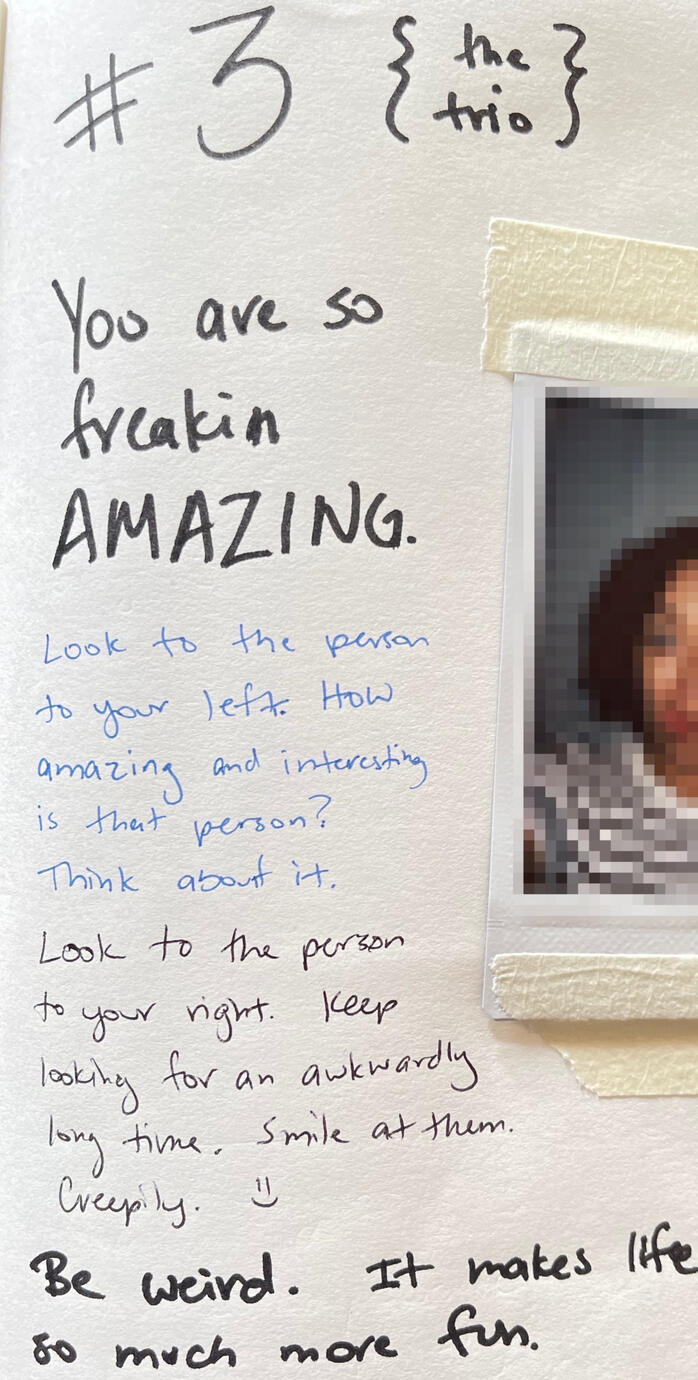 #3 { the
trio }
You are so
freakin
AMAZING.
Look to the person
to your left. How
amazing and interesting
is that person?
Think about it.
Look to the person
to your right. Keep
looking for an awkwardly
long time. Smile at them.
Creepily. :)
Be weird. It makes life
so much more fun.